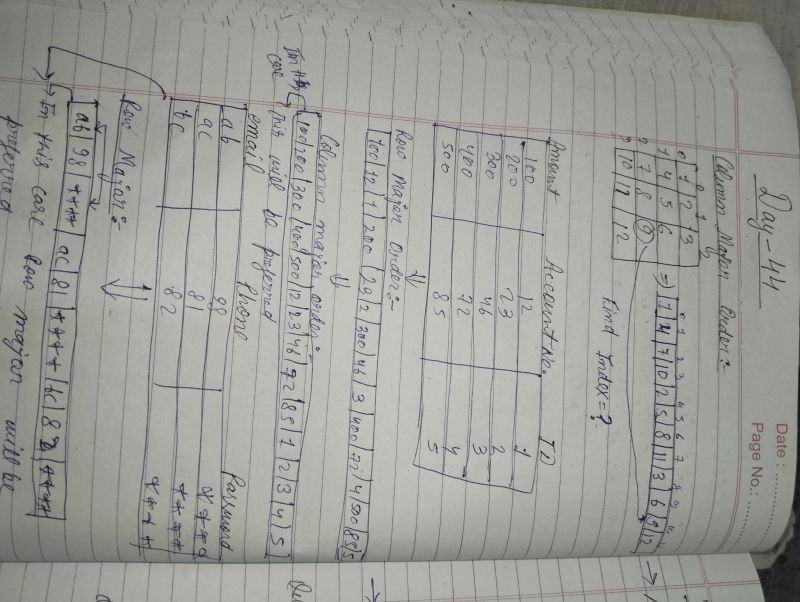 Date : ............
Page No.: ............
Day-44
Column Major Order:-
0 1 2
0 1 2 3
1 4 5 6
2 7 8 9
3 10 11 12
=>
0 1 2 3 4 5 6 7 8 9 10 11
1 4 7 10 2 5 8 11 3 6 9 12
Find Index=?
Amount Account No. ID
100 12 1
200 23 2
300 46 3
400 72 4
500 85 5
Row Major Order:-
100 12 1 200 29 2 300 46 3 400 72 4 500 85 5
Column major order:-
100 200 300 400 500 12 23 46 72 85 1 2 3 4 5
In this case → this will be preferred
email Phone Password
ab 98 ****
ac 81 ****
bc 82 ****
Row Major:-
ab 98 **** ac 81 **** bc 82 ****
→ In this case Row major will be
preferred